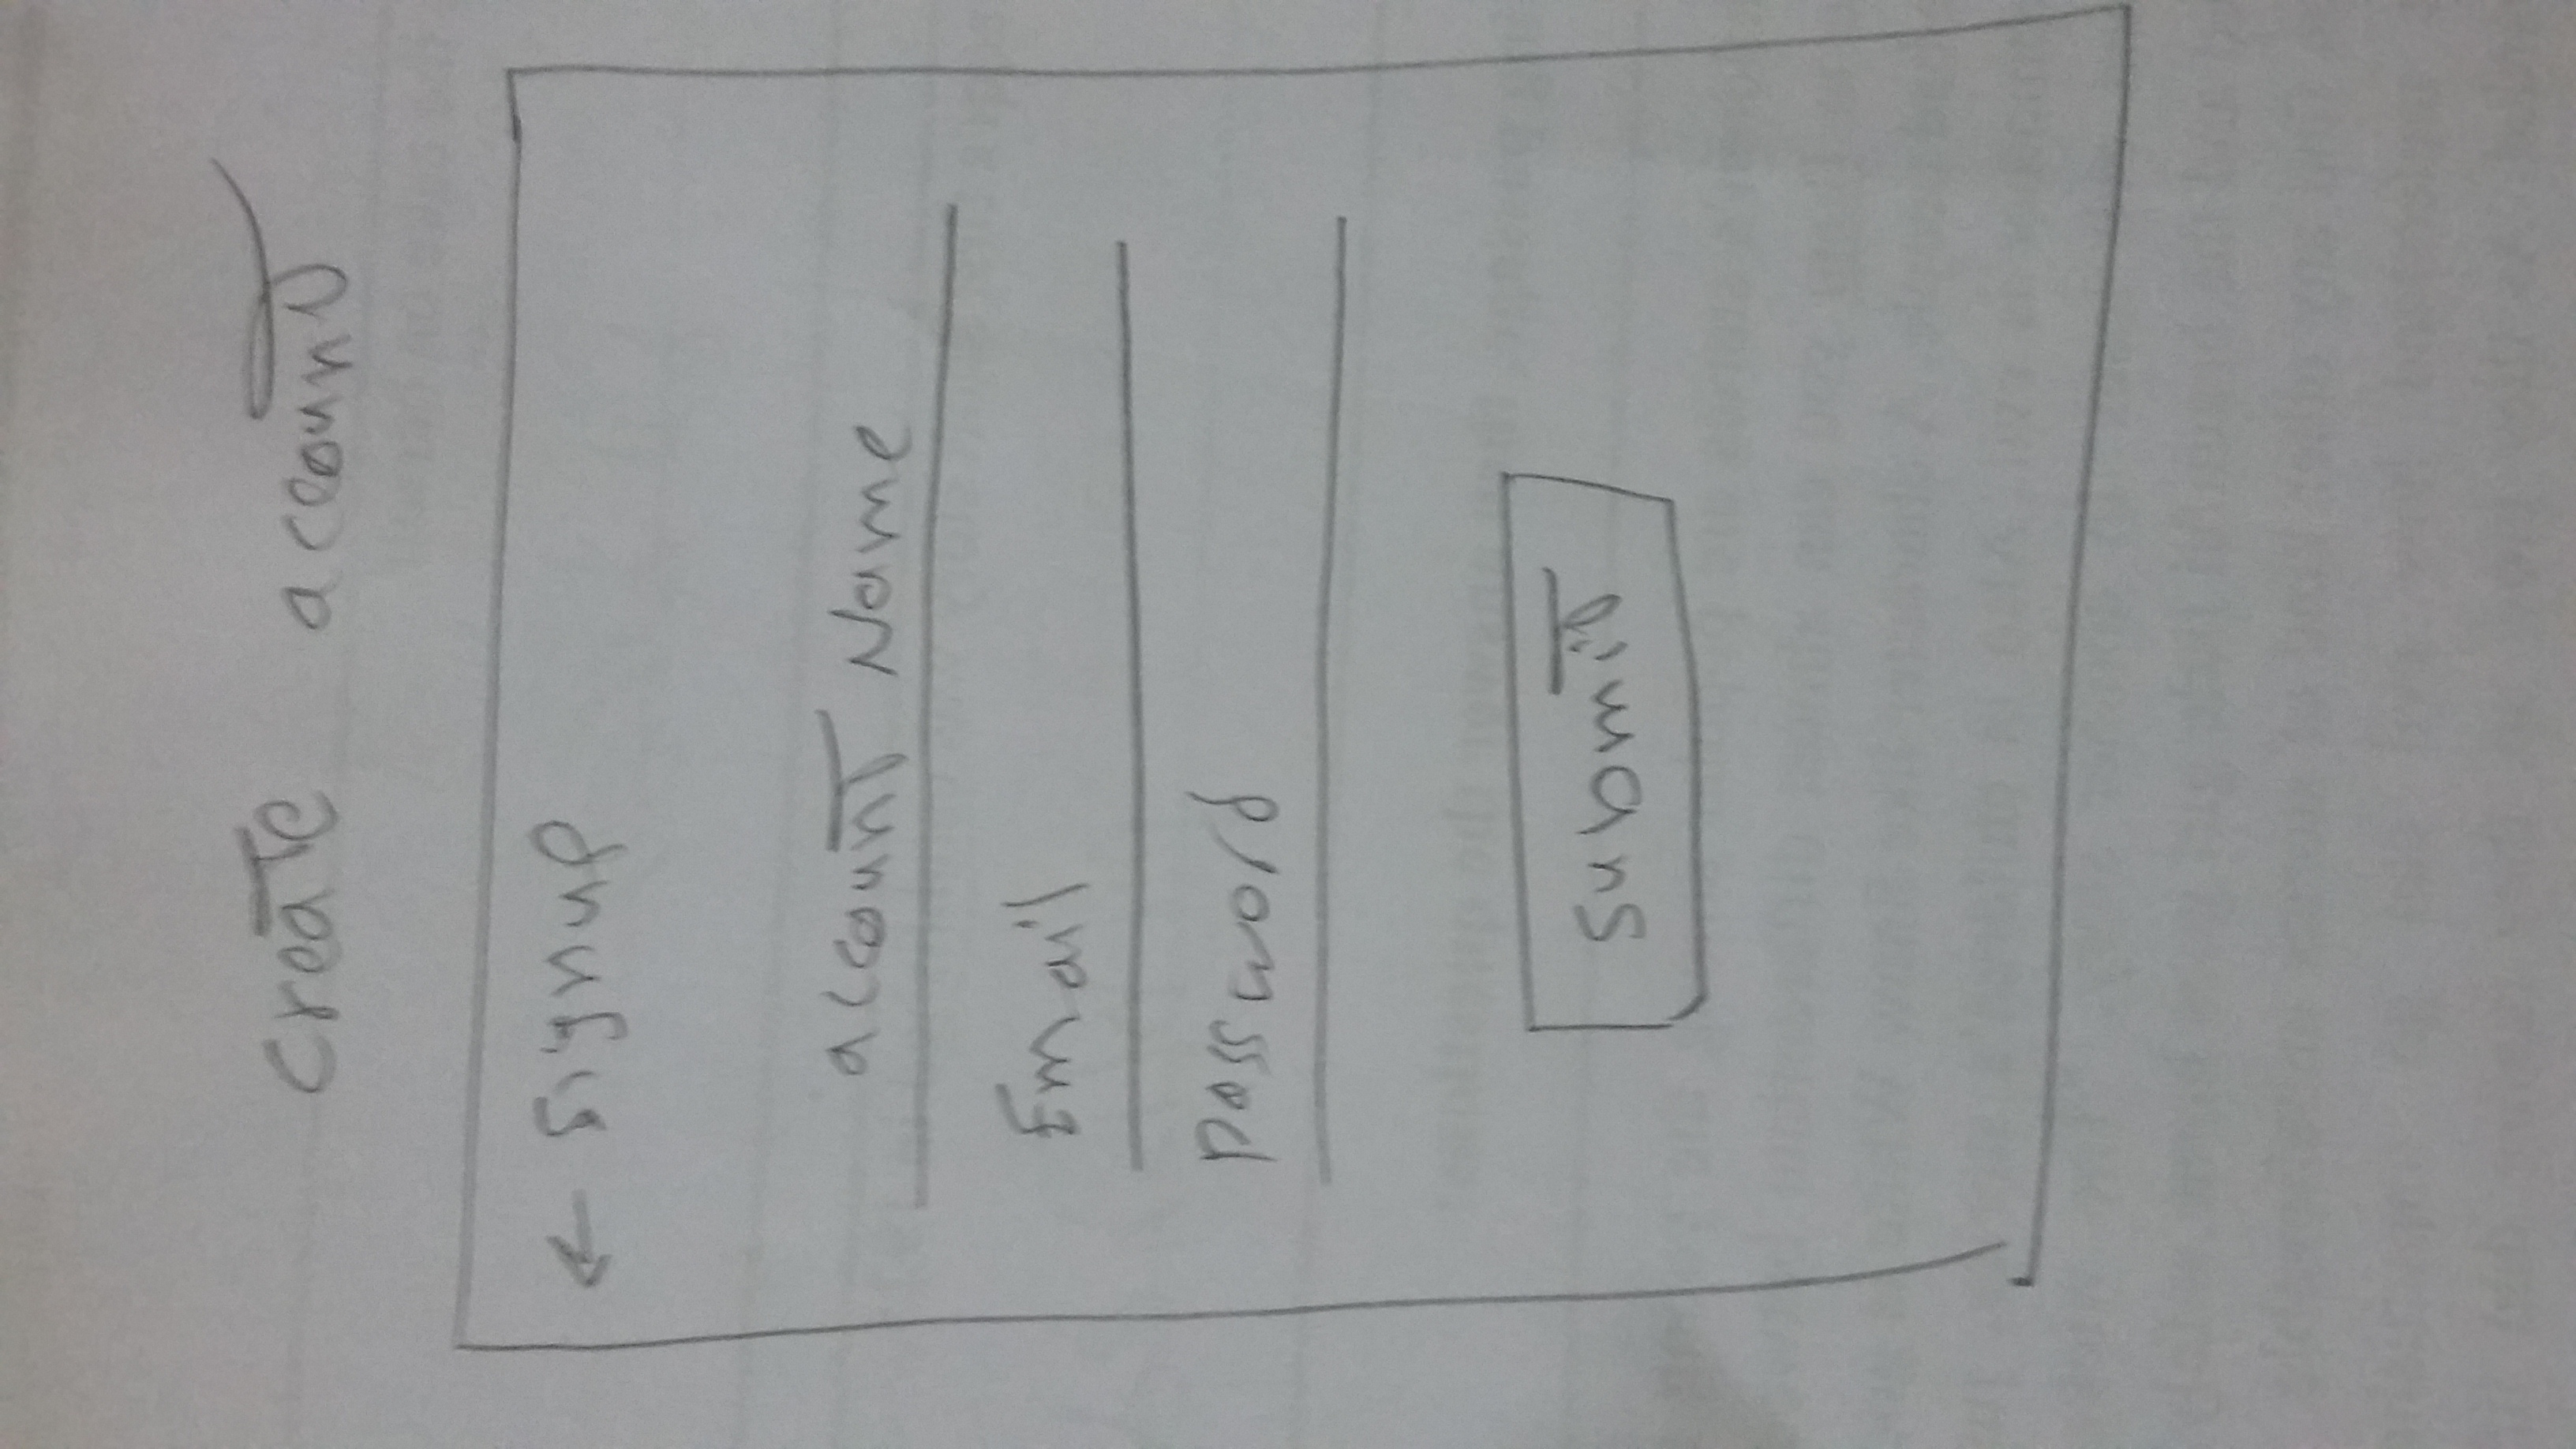 create account
← signup
account Name
Email
password
submit